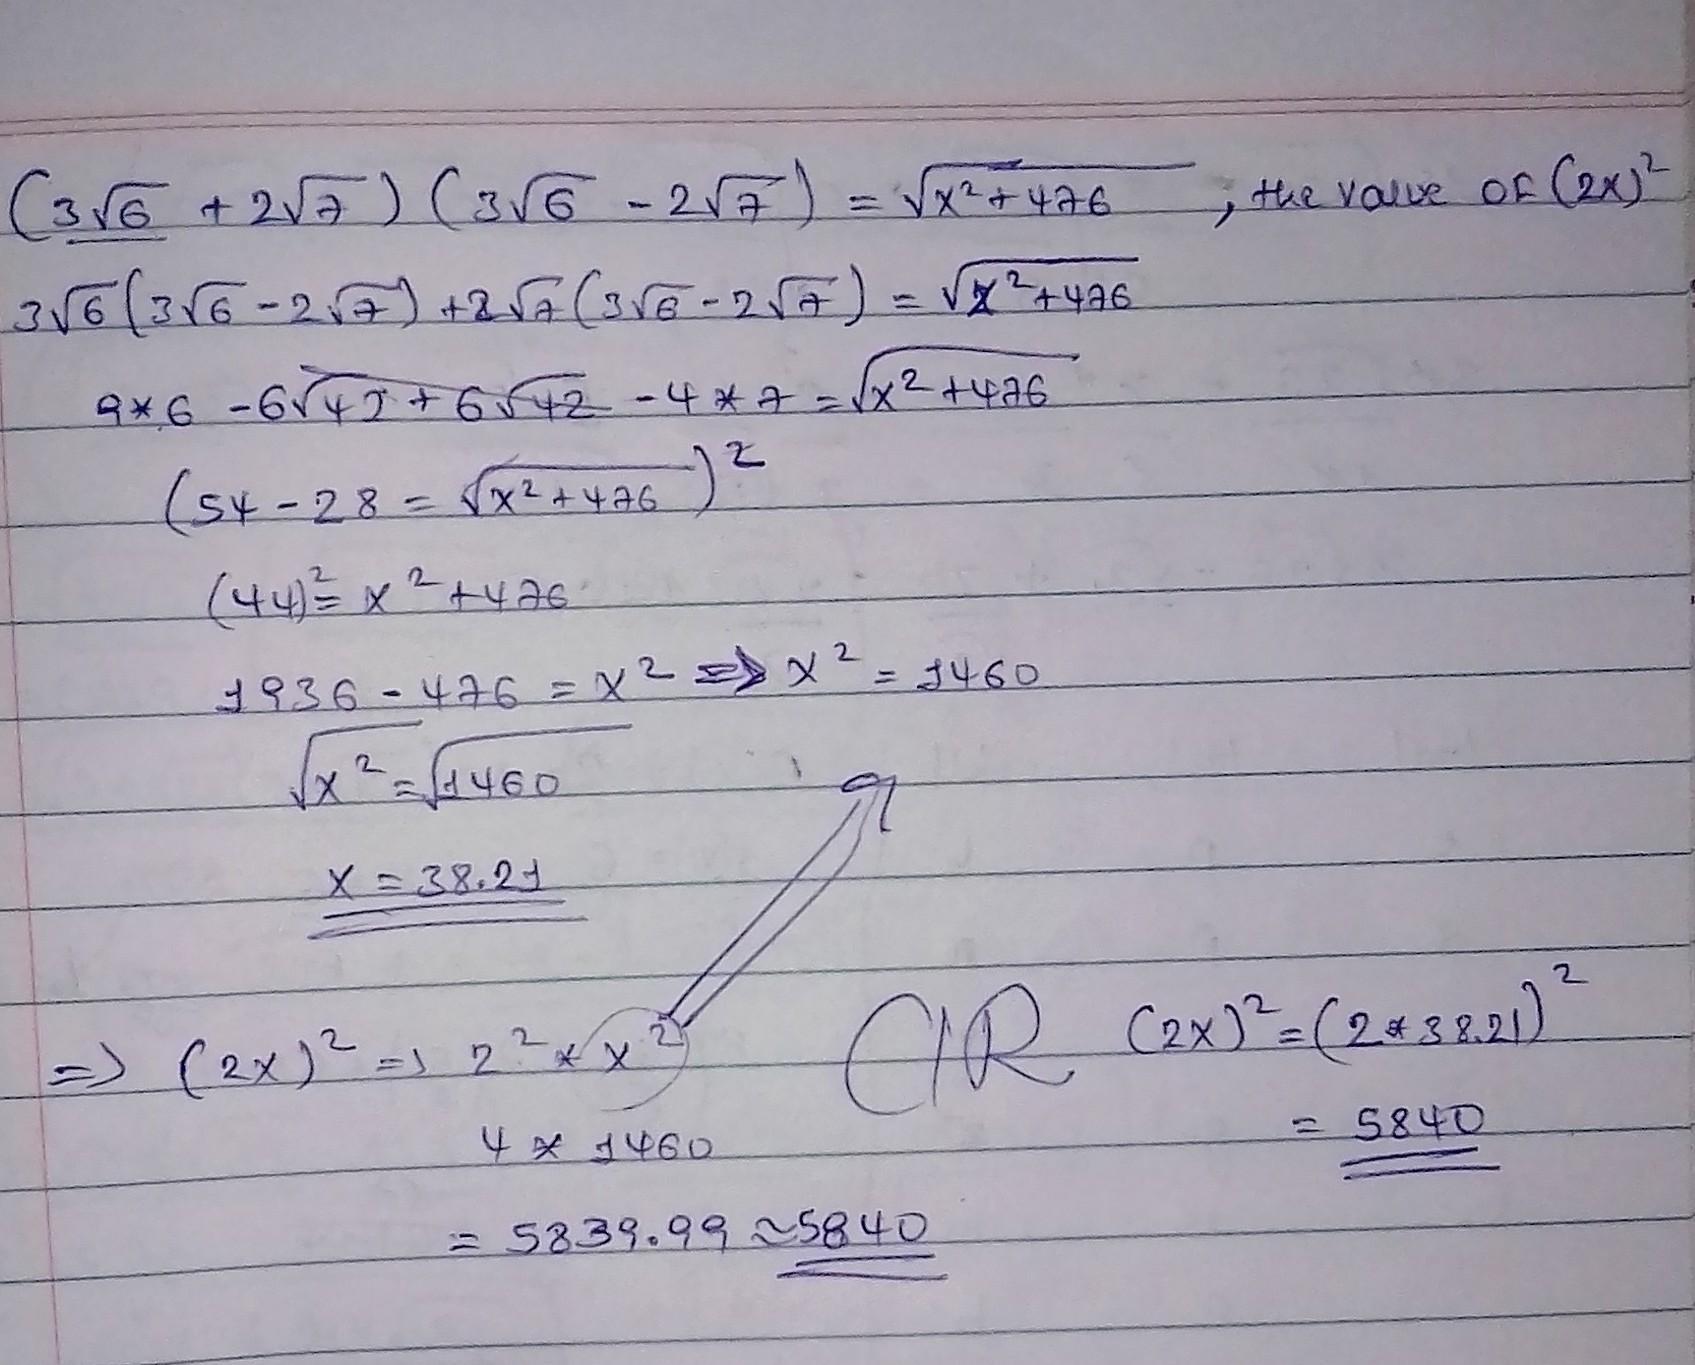 (3√6 + 2√7) (3√6 - 2√7) = √x²+476 , the value of (2x)²
3√6(3√6 - 2√7) + 2√7(3√6 - 2√7) = √x²+476
9*6 - 6√42 + 6√42 - 4*7 = √x²+476
(54 - 28 = √x²+476)²
(44)² = x² + 476
1936 - 476 = x² => x² = 1460
√x² = √1460
x = 38.21
=> (2x)² => 2² * x² OR (2x)² = (2*38.21)²
4 * 1460 = 5840
= 5839.99 ≈ 5840